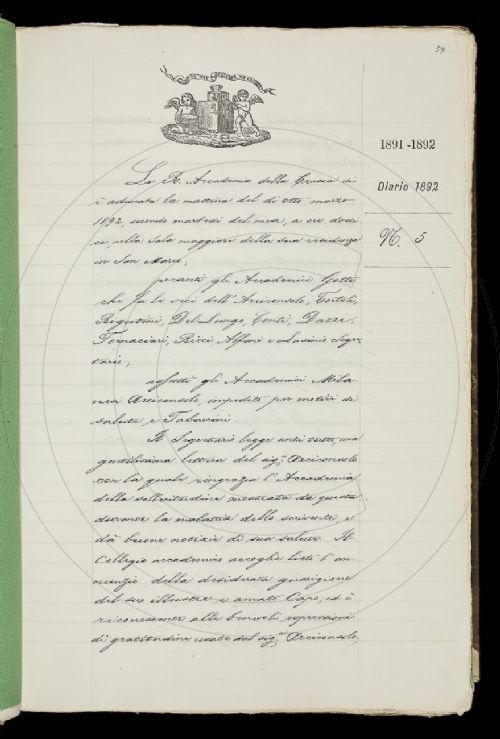 59
1891-1892
Diario 1892
N. 5
La R. Accademia della Crusca si
è adunata la mattina del dì otto marzo
1892, secondo martedì del mese, a ore dodi
ci, nella sala maggiore della sua residenza
in San Marco;
presenti gli Accademici Gotti
che fa le veci dell'Arciconsolo, Tortoli,
Rigutini, Del Lungo, Conti, Dazzi,
Fornaciari, Ricci, Alfani e Segre
tario;
assenti gli Accademici Mila
nesi Arciconsolo, impedito per motivi di
salute e Tabarrini.
Il Segretario legge anzi tutto una
gentilissima lettera del sig.r Arciconsolo
con la quale ringrazia l'Accademia
della sollecitudine mostrata da questa
durante la malattia dello scrivente, e
dà buone notizie di sua salute. Il
Collegio accademico accoglie lieto l'an
nunzio della desiderata guarigione
del suo illustre e amato Capo, ed è
riconoscente alle benevole espressioni
di gratitudine usate dal sig.r Arciconsolo,